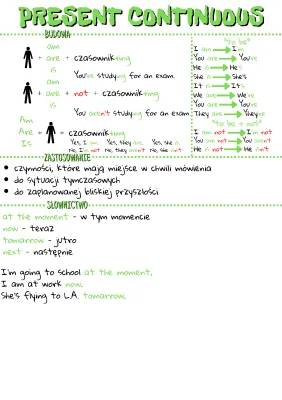 PRESENT CONTINUOUS
BUDOWA
am
+ are + czasownik+ing
is
You're studying for an exam.
am
+ are + not + czasownik+ing
is
You aren't studying for an exam.
Am
Are + + czasownik+ing
Is
Yes, I am. Yes, they are. Yes, she is.
No, I'm not. No, they aren't. No, she isn't.
"to be"
I am I'm
You are You're
He is He's
She is She's
It is It's
We are We're
You are You're
They are They're
"to be + not"
I am not I'm not
You are not You aren't
He is not He isn't
ZASTOSOWANIE
czynności, które mają miejsce w chwili mówienia
do sytuacji tymczasowych
do zaplanowanej bliskiej przyszłości
SŁOWNICTWO
at the moment - w tym momencie
now - teraz
tomorrow - jutro
next - następnie
I'm going to school at the moment.
I am at work now.
She's flying to L.A. tomorrow.